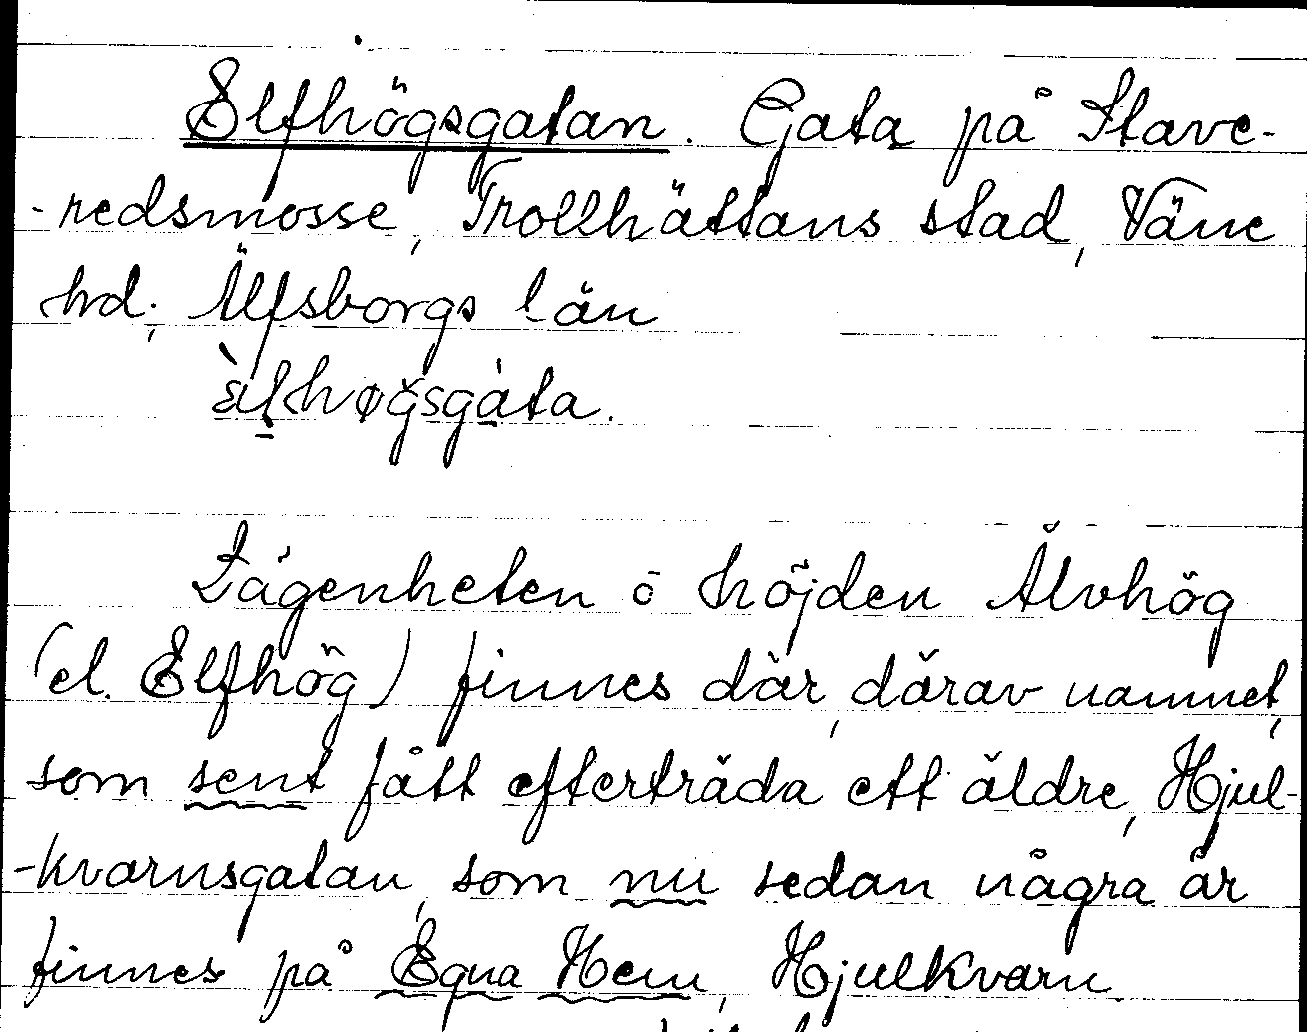 Elfhögsgatan. Gata på Stave-
-redsmosse, Trollhättans stad, Väne
hd; Älfsborgs län
Lägenheten o höjden Älvhög
(el. Elfhög) finnes där, därav namnet,
som sent fått efterträda ett äldre, Hjul-
-kvarnsgatan, som nu sedan några år
finnes på Egna Hem, Hjulkvarn.